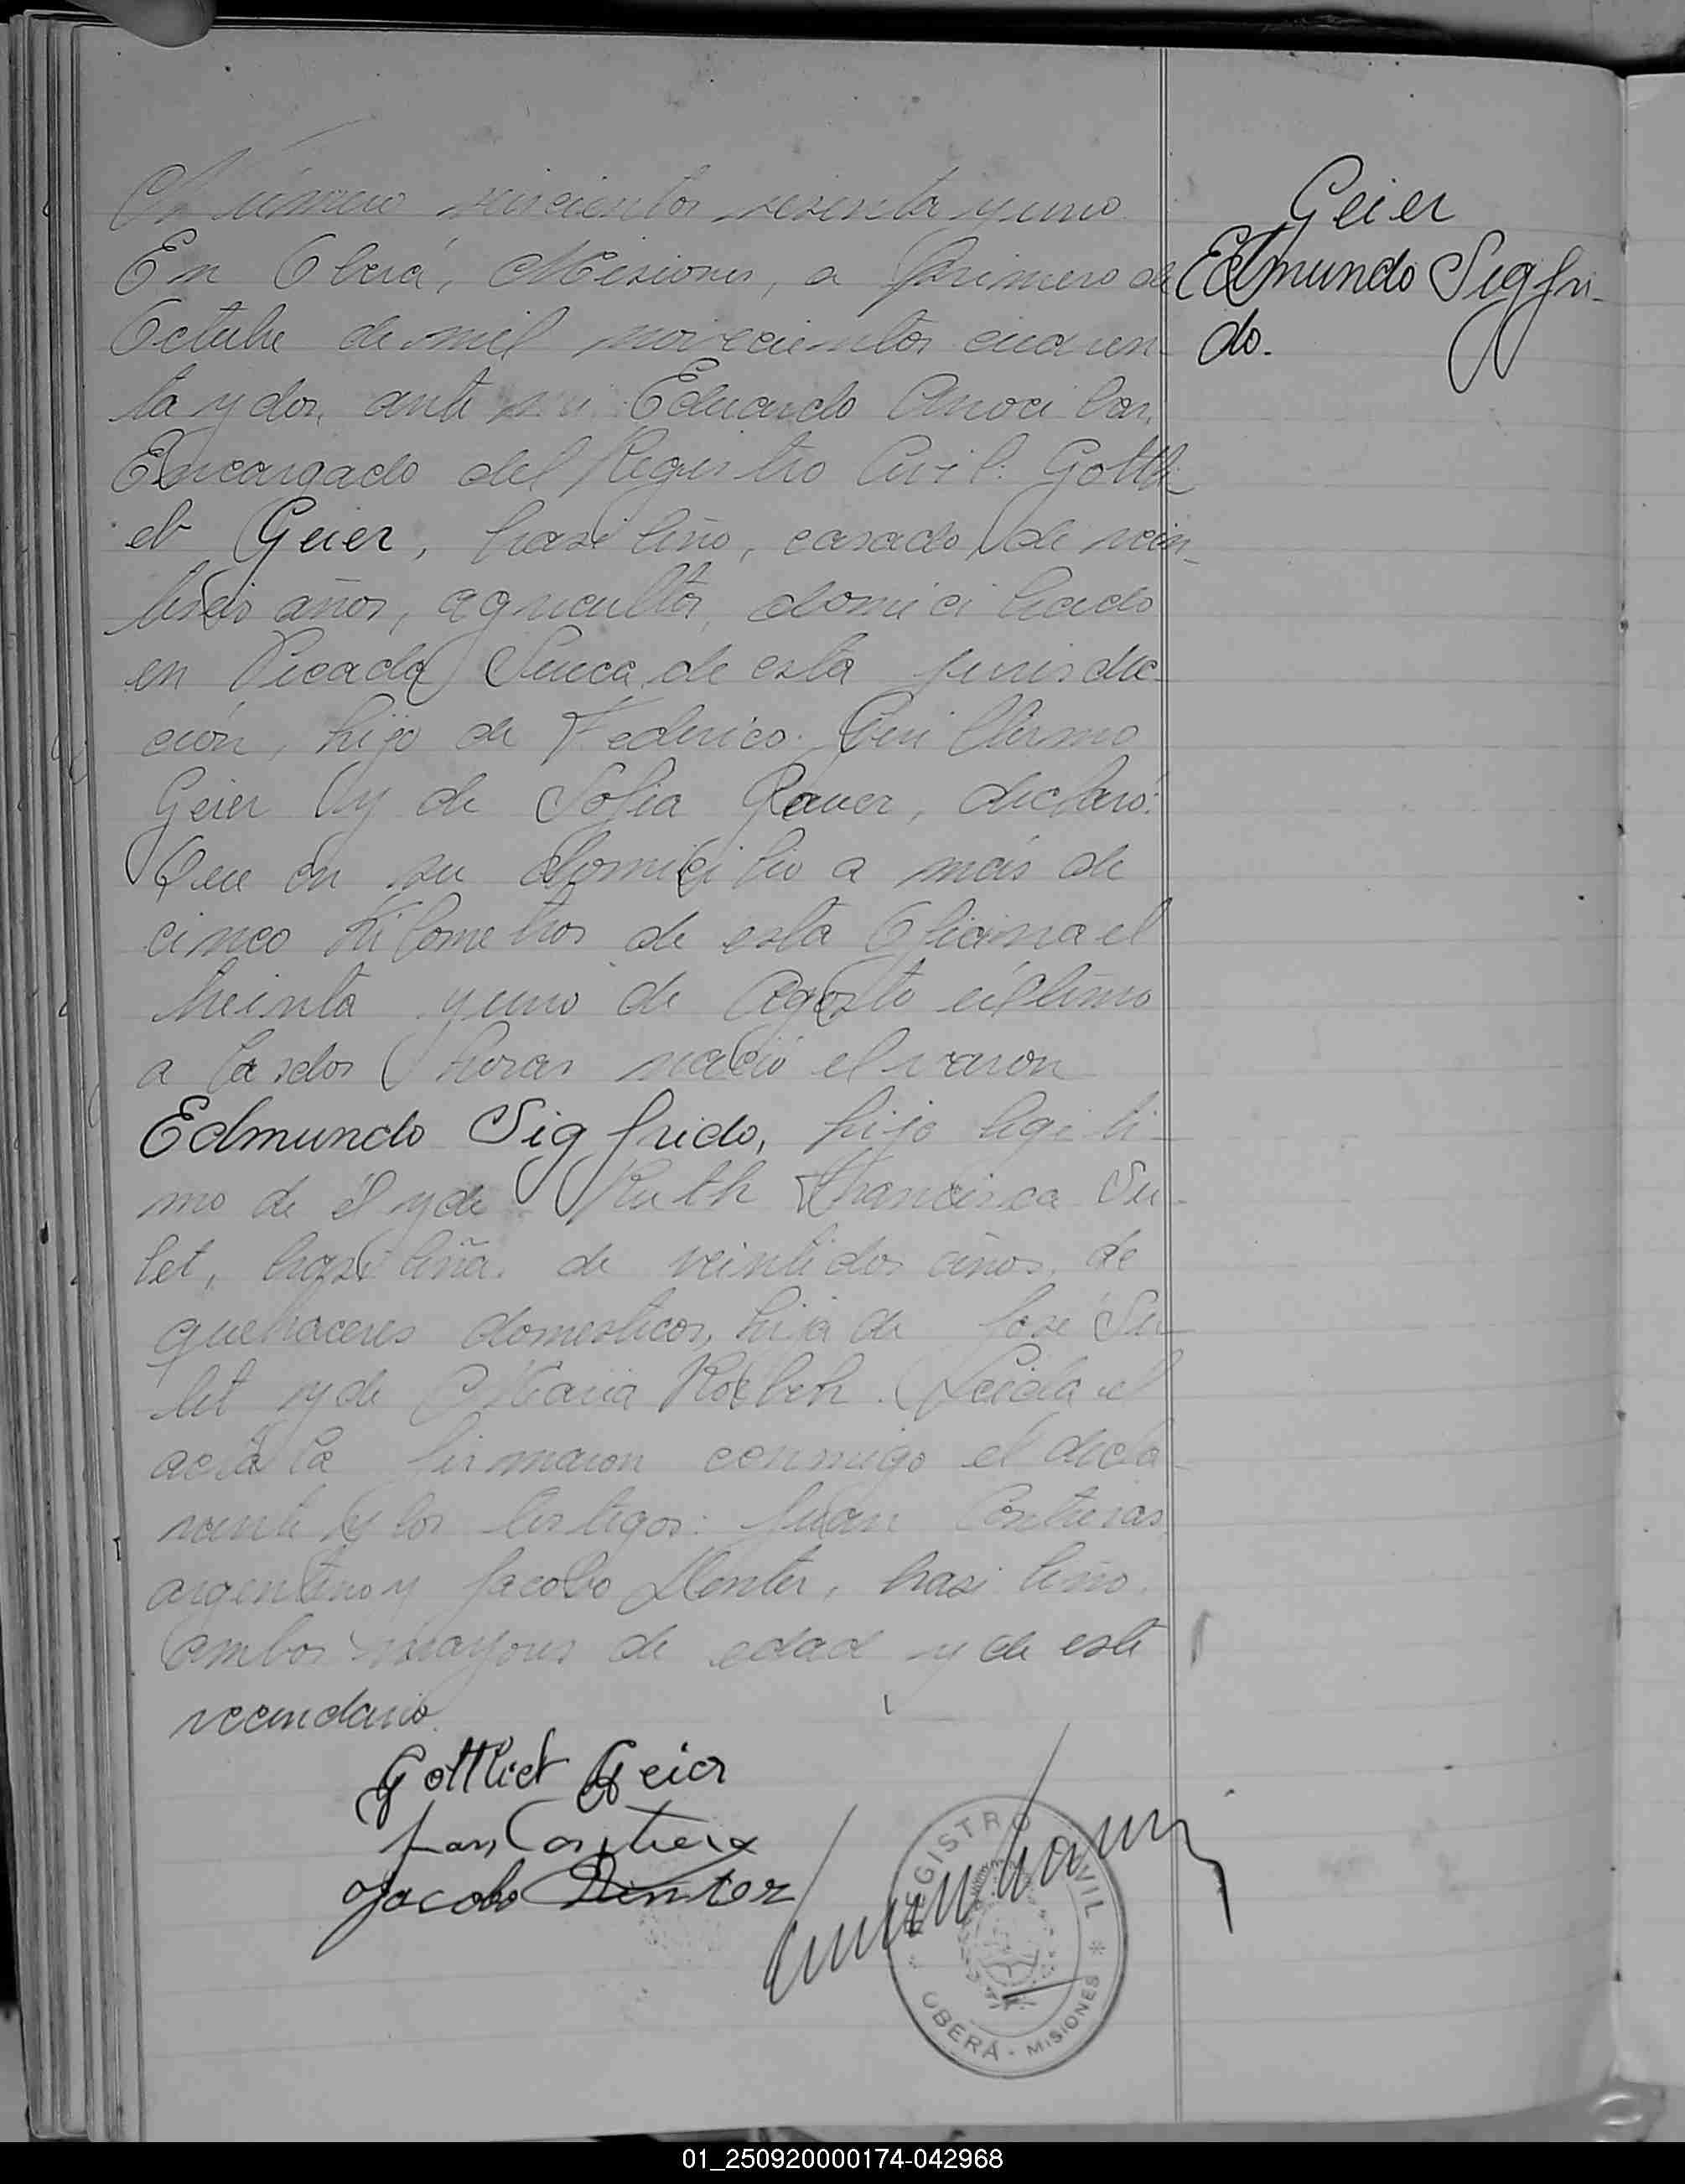 Número seiscientos sesenta y uno
En Oberá, Misiones, a primero de
Octubre de mil novecientos cuaren-
ta y dos, ante mi Eduardo
Encargado del Registro Civil: Gottli-
eb Geier, brasileño, casado, de vein-
tiseis años, agricultor, domiciliado
en Picada Sueca, de esta jurisdic-
ción, hijo de Federico Guillermo
Geier y de Sofia Rauer, declaró:
Que en su domicilio a más de
cinco kilometros de esta Oficina el
treinta y uno de Agosto último
a las dos horas nació el varon
Edmundo Sigfrido, hijo legiti-
mo de él y de Ruth Francisca Su-
let, brasileña, de veintidos años, de
quehaceres domesticos, hija de José Su-
let y de Maria . Leida el
acta la firmaron conmigo el decla-
rante y los testigos: Juan Contreras,
argentino y Jacobo , brasileño,
ambos mayores de edad y de este
vecindario.
Geier
Edmundo Sigfri-
do.
Gottlieb Geier
Juan
Jacobo
REGISTRO CIVIL
OBERÁ - MISIONES
01_250920000174-042968